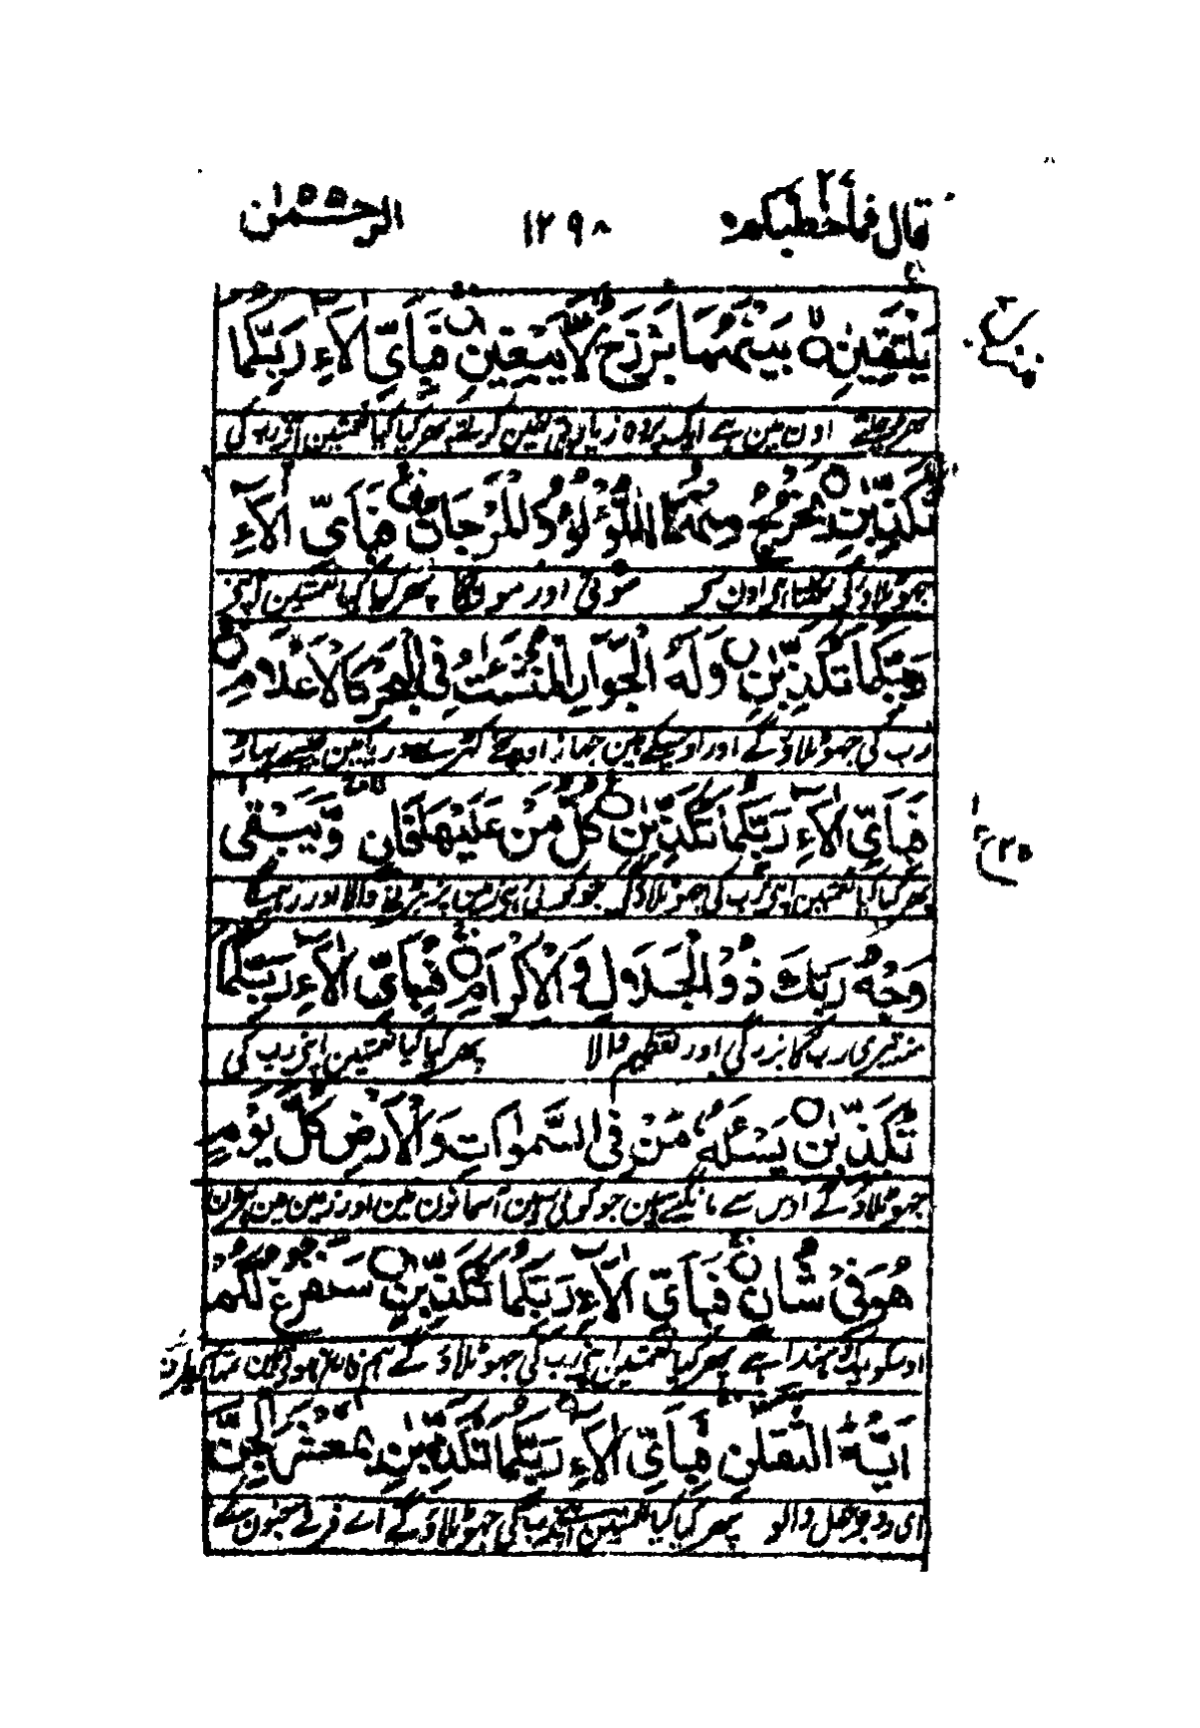 قال فماخطبكم ٢٧ ١٢٩٨ الرحمٰن ٥٥
يَلْتَقِيٰنِ ۝ بَيْنَهُمَا بَرْزَخٌ لَّا يَبْغِيٰنِ ۝ فَبِاَيِّ اٰلَآءِ رَبِّكُمَا
اون مین ہے ایک پردہ زیادتی نہین کرتے پھر کیا کیا نعمتین اپنے رب کی
تُكَذِّبٰنِ ۝ يَخْرُجُ مِنْهُمَا اللُّؤْلُؤُ وَالْمَرْجَانُ ۝ فَبِاَيِّ اٰلَآءِ
جھوٹلاؤ گی نکلتا ہی اون سے موتی اور مونگا پھر کیا کیا نعمتین اپنے
رَبِّكُمَا تُكَذِّبٰنِ ۝ وَلَهُ الْجَوَارِ الْمُنْشَئٰتُ فِي الْبَحْرِ كَالْاَعْلَامِ ۝
رب کی جھوٹلاؤ گے اور اوسیکے ہین جہاز اونچے کھڑے دریا مین جیسے پہاڑ
فَبِاَيِّ اٰلَآءِ رَبِّكُمَا تُكَذِّبٰنِ ۝ كُلُّ مَنْ عَلَيْهَا فَانٍ وَّيَبْقٰى
پھر کیا کیا نعمتین اپنی رب کی جھوٹلاؤ گے جو کوئی ہی زمین پر فنا ہونے والا اور رہیگا
وَجْهُ رَبِّكَ ذُو الْجَلٰلِ وَالْاِكْرَامِ ۝ فَبِاَيِّ اٰلَآءِ رَبِّكُمَا
منہ تیری رب کا بزرگی اور تعظیم والا پھر کیا کیا نعمتین اپنی رب کی
تُكَذِّبٰنِ ۝ يَسْـَٔلُهٗ مَنْ فِي السَّمٰوٰتِ وَالْاَرْضِ كُلَّ يَوْمٍ
جھوٹلاؤ گے اوس سے مانگتے ہین جو کوئی ہین آسمانون مین اور زمین مین ہر دن
هُوَ فِيْ شَاْنٍ ۝ فَبِاَيِّ اٰلَآءِ رَبِّكُمَا تُكَذِّبٰنِ ۝ سَنَفْرُغُ لَكُمْ
اوسکو ایک دھندا ہے پھر کیا نعمتین اپنی رب کی جھوٹلاؤ گے ہم فارغ ہوتے ہین تمہاری طرف
اَيُّهَ الثَّقَلٰنِ ۝ فَبِاَيِّ اٰلَآءِ رَبِّكُمَا تُكَذِّبٰنِ يٰمَعْشَرَ الْجِنِّ
ای دو بوجھل والو پھر کیا کیا نعمتین اپنے رب کی جھوٹلاؤ گے اے فرقے جنون کے